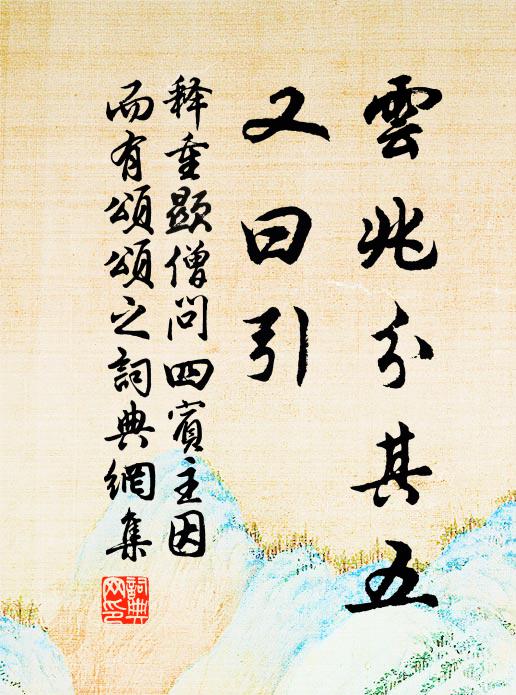 雲兆分其五
又曰引
释重顯僧問四賓主因
而有頌頌之詞典網集
詞典
网印